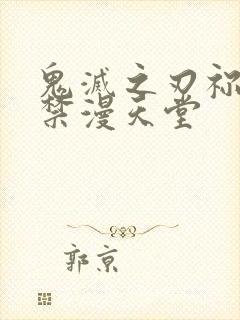 鬼滅之刃祢
禁漫天堂
郭京